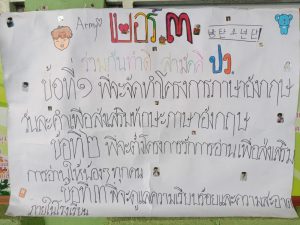 Army
เบอร์ ๓
방탄소년단
ร่วมกันทำดี สามัคคี ปว.
ข้อที่ ๑ พี่จะจัดทำโครงการภาษาอังกฤษ
วันละคำเพื่อส่งเสริมทักษะภาษาอังกฤษ
ข้อที่ ๒ พี่จะตั้งโครงการรักการอ่านเพื่อส่งเสริม
การอ่านให้น้องๆทุกคน
ข้อที่ ๓ พี่จะดูแลความเรียบร้อยและความสะอาด
ภายในโรงเรียน